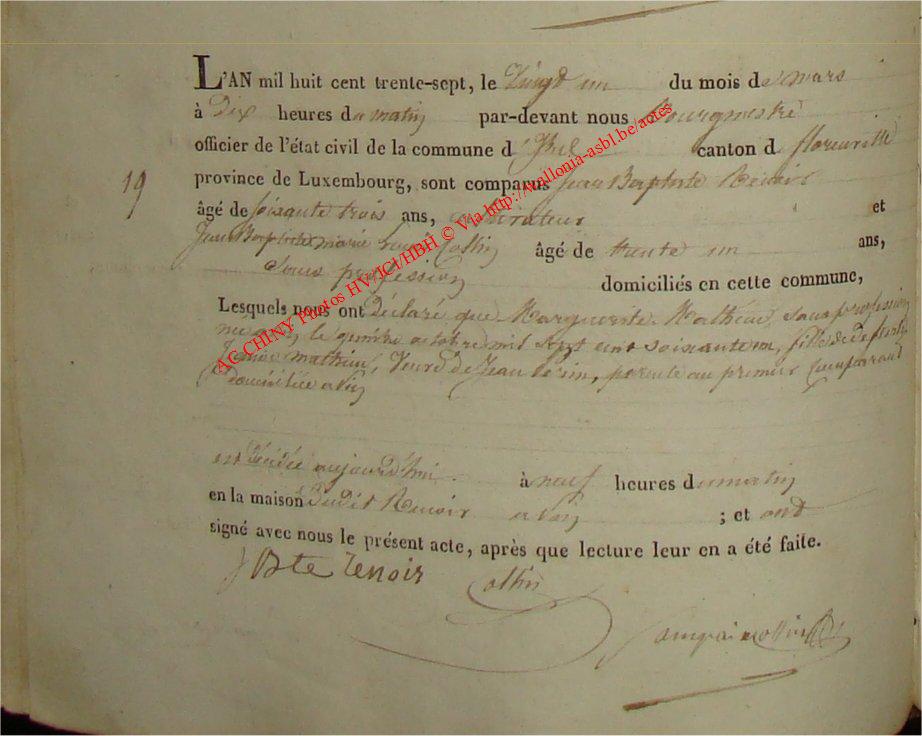 L'AN mil huit cent trente-sept, le Vingt un du mois de mars
à Dix heures du matin par-devant nous Bourgmestre
officier de l'état civil de la commune d' canton d florenville
19
province de Luxembourg, sont comparus Jean Baptiste Renoir
âgé de soixante trois ans, cultivateur et
Jean Baptiste marie Collin âgé de trente un ans,
Sans profession domiciliés en cette commune,
Lesquels nous ont déclaré que Marguerite Mathieu, sans profession
née le octobre mil sept cent soixante un, fille de
mathieu, Veuve de Jean parente au premier Comparant
Domiciliée a
est décédée aujourd'hui à neuf heures du matin
en la maison dudit Renoir a ; et ont
signé avec nous le présent acte, après que lecture leur en a été faite.
J Bte Renoir Collin
AC CHINY Photos HV/JCI/HBH © Via http://wallonia-asbl.be/actes